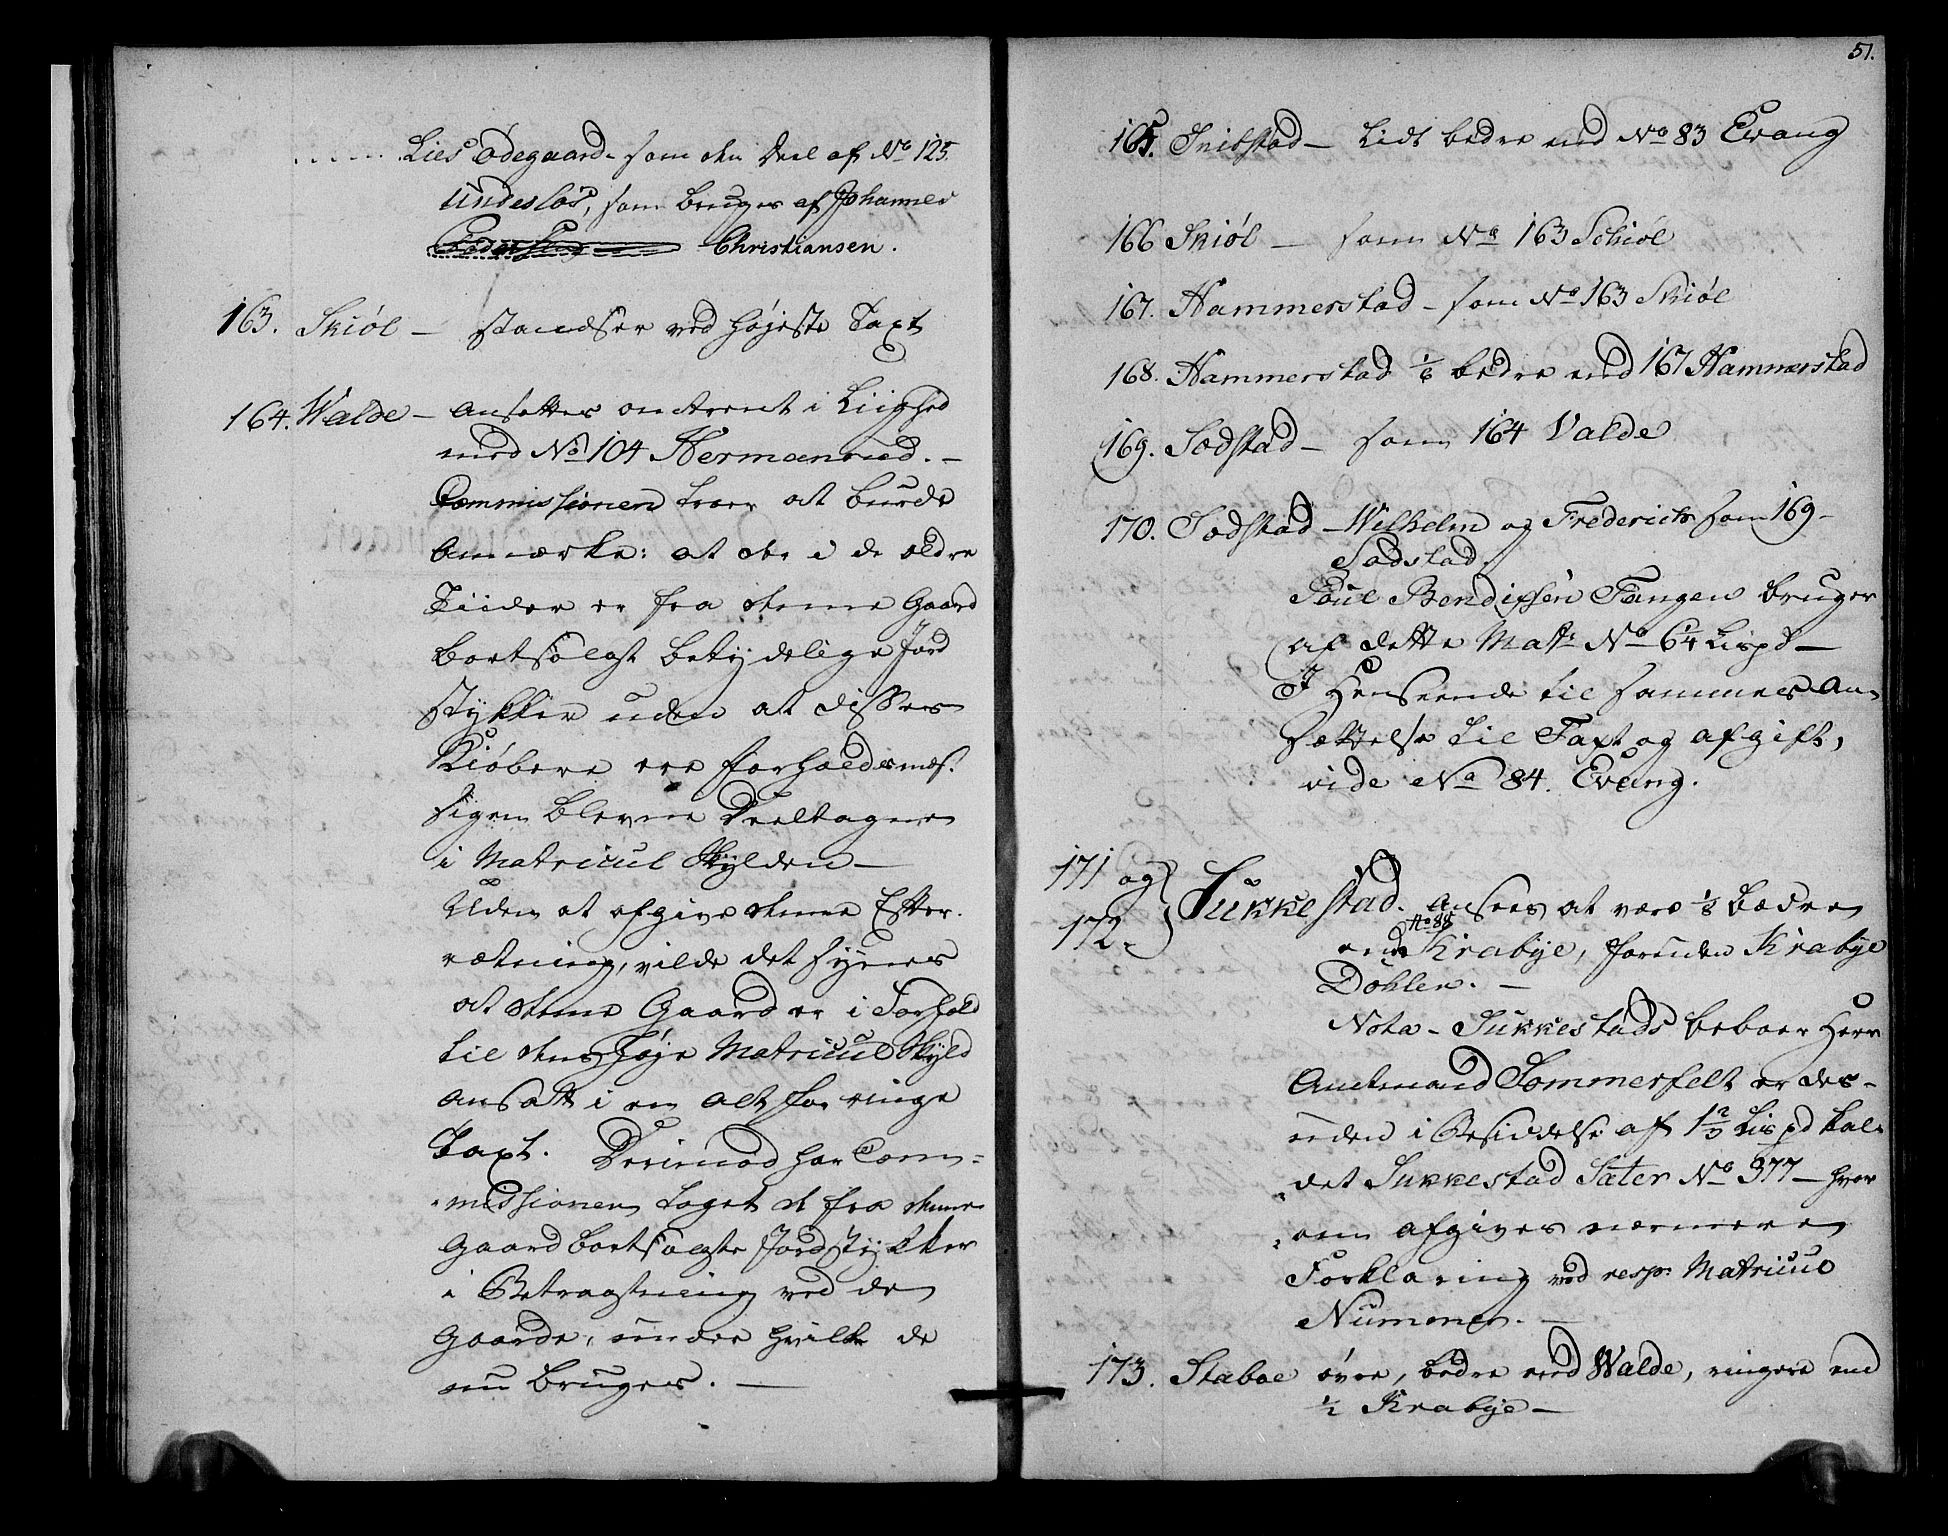 Lies Ødegaard som den Deel af No 125
Undeslos, som bruges af Johannes
Christiansen.
163. Skiøl — standser ved højeste Taxt
164. Walde — ansettes omtrent i Liighed
med No 104 Hermanrud. —
Commissionen troer at burde
anmærke: at der i de ældre
Tiider er fra denne Gaard
bortsolgt betydelige Jord
stykker uden at disses
Kiøbere ere forholdsmæs-
sigen blevne Deeltagere
i Matricul Skylden —
Uden at afgive denne Efter-
rætning, vilde det synes
at denne Gaard er i Forhold
til dens høje Matricul Skyld
ansatt i en alt for ringe
Taxt. Derimod har Com-
missionen taget de fra denne
Gaard bortsolgte Jordstykker
i Betragtning ved de
Gaarde, under hvilke de
nu bruges. —
51.
165. Snilstad — Lidt bedre end No 83 Evang
166 Skiøl — som No 163 Schiøl
167. Hammerstad — som No 163 Skiøl
168. Hammerstad 1/6 bedre end 167 Hammerstad
169. Sodstad — som 164 Valde
170. Sodstad — Wilhelm og Frederich som 169 —
Sodstad.
Poul Bendixsen Fangen bruger
af dette Matr No 6 1/4 Lispd —
I Henseende til sammes An-
sættelse til Taxt og afgift,
vide No 84. Evang.
171 og
172. Sukkestad. ansees at være 1/8 bedre
end No 88 Krabye, foruden Krabye
Dohlen. —
Nota — Sukkestads beboer Herr
Amtmand Sommerfelt er des-
uden i Besiddelse af 1 2/3 Lispd kal-
det Sukkestad Sæter No 377 — hvor
om afgives nærmere
Forklaring ved resp: Matricul
Nummer. —
173. Staboe øvre, bedre end Walde, ringere end
1/2 Krabye —